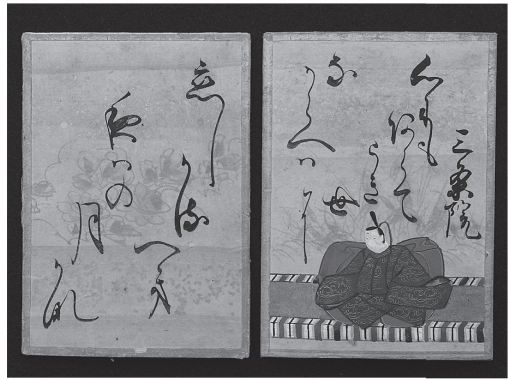 三条院
心にも
あらて
うき
世に
な
からへは
恋し
かる
へき
夜はの
月
かな